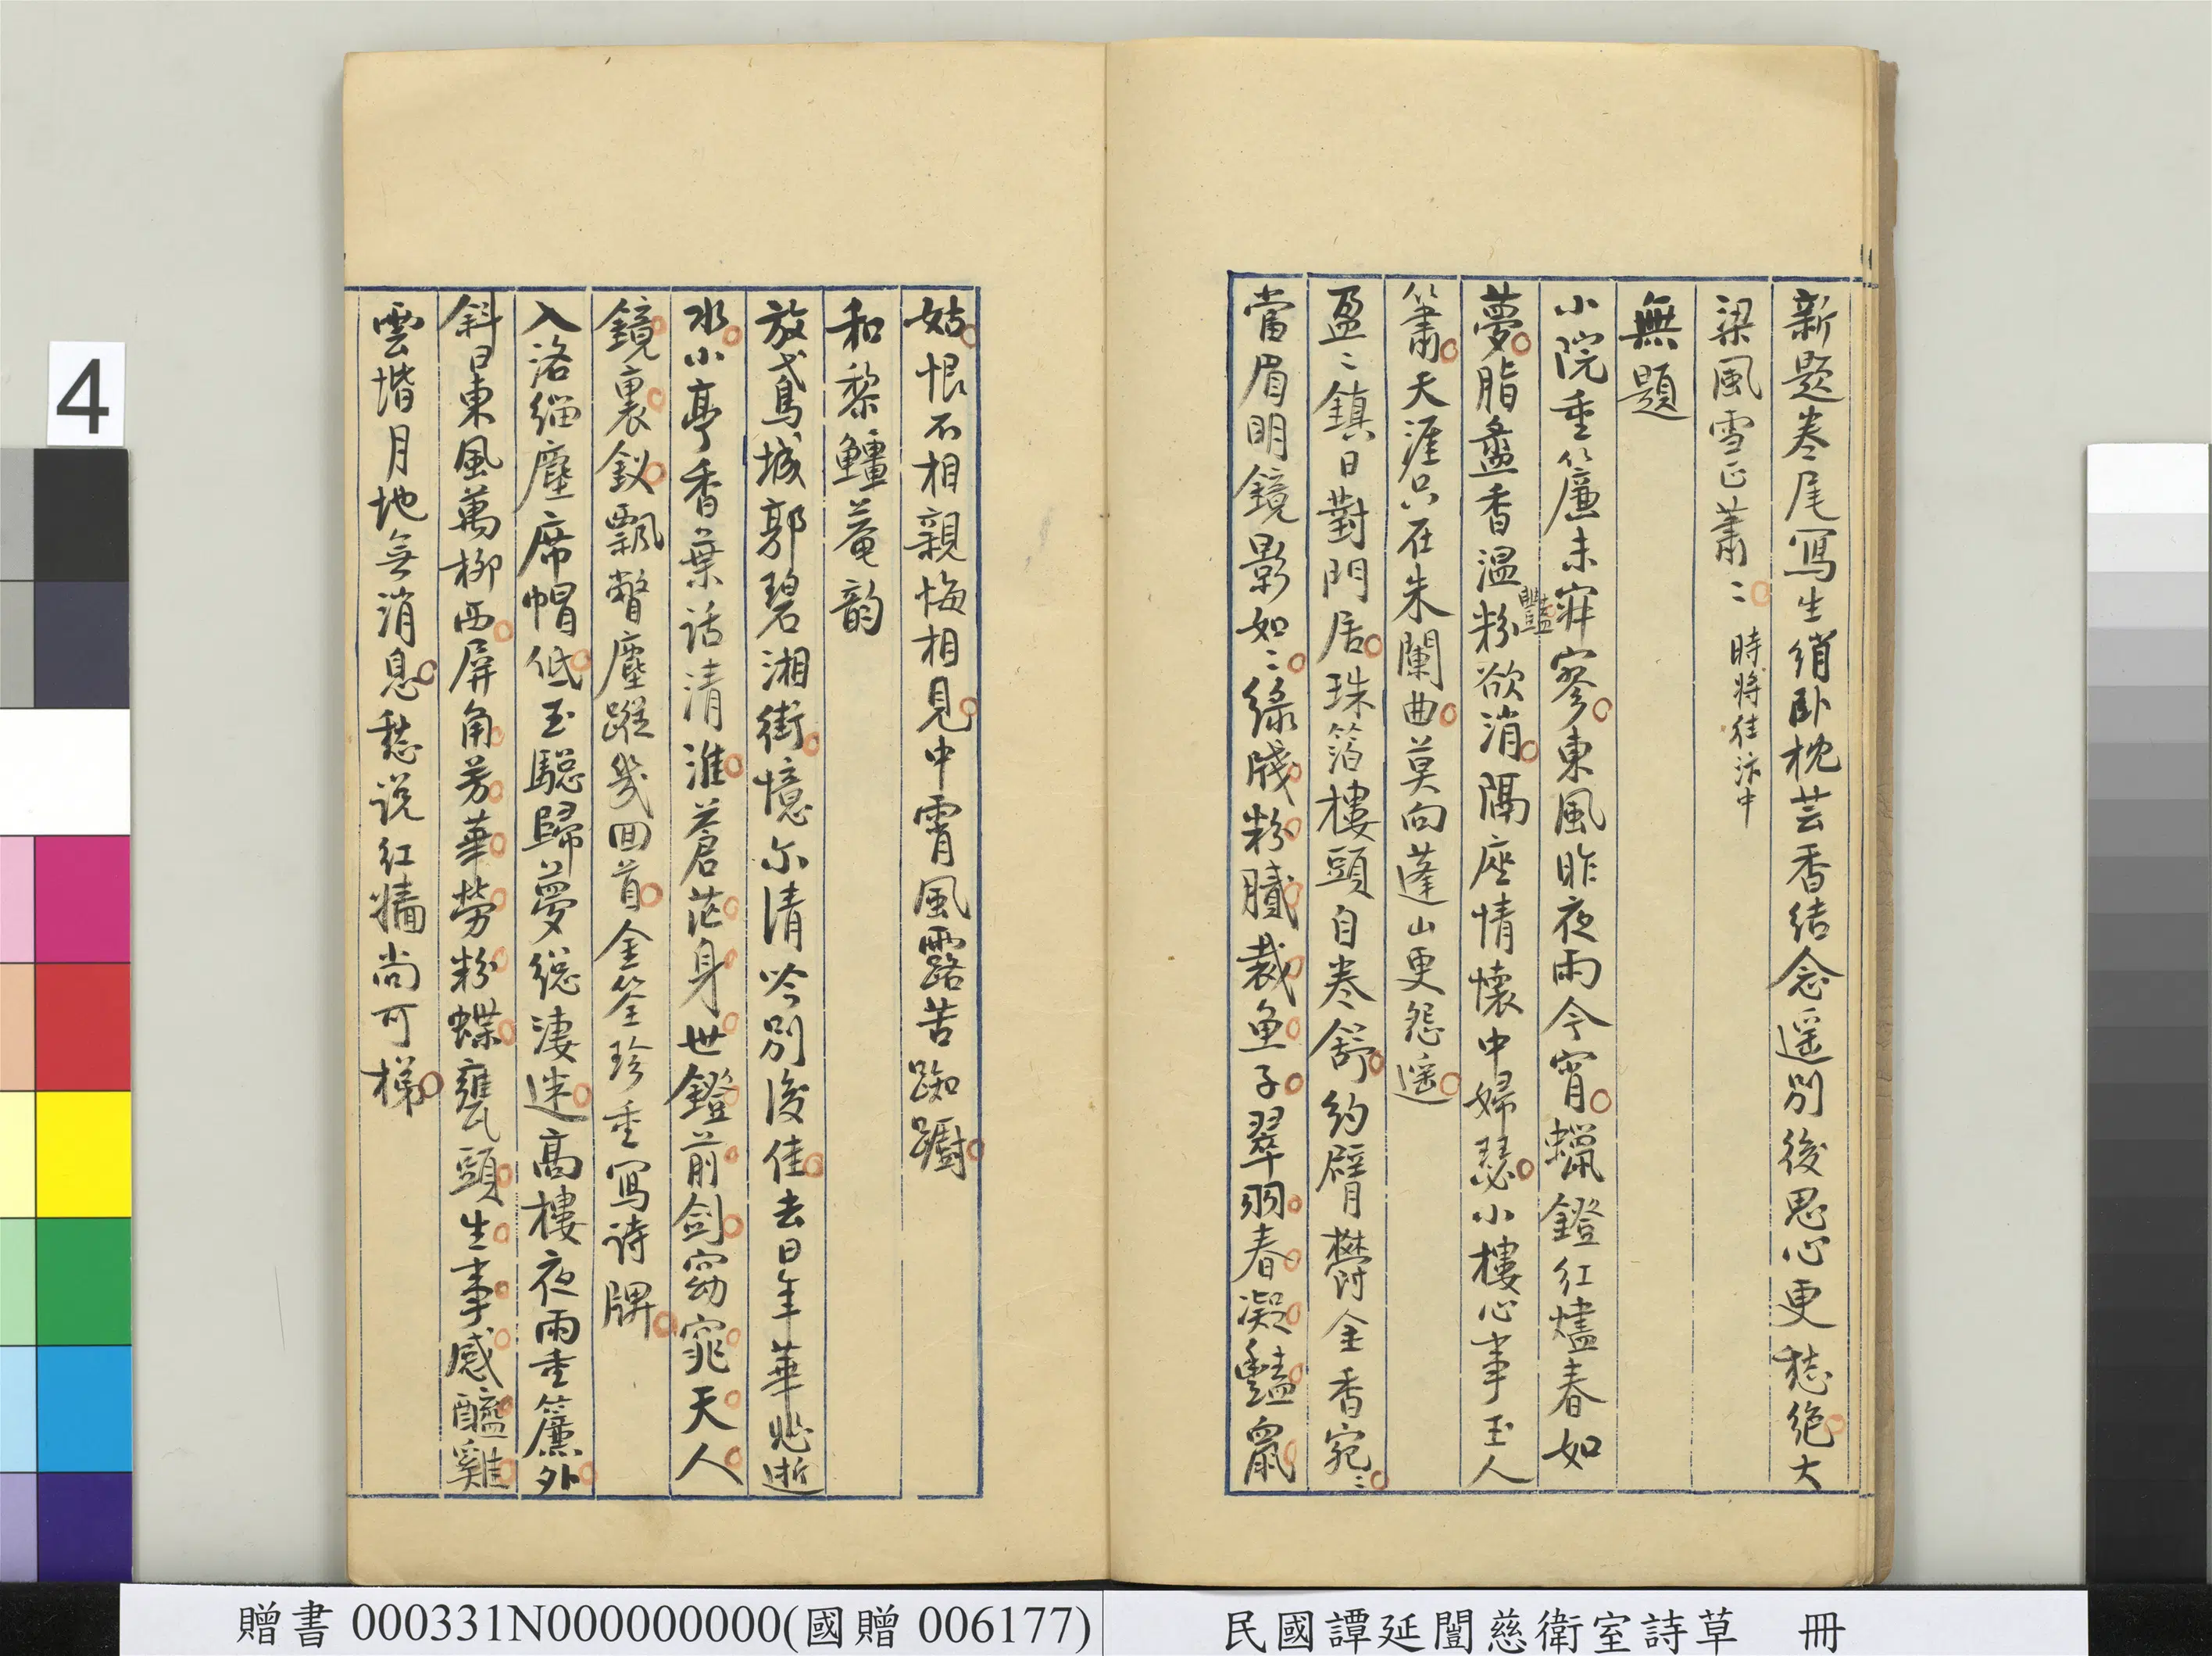 新題卷尾寫生綃臥枕芸香結念遥別後思心更愁絶大
梁風雪正蕭〻時將往汴中
無題
小院重簾未寂寥東風昨夜雨今宵蠟鐙紅燼春如
夢脂盝香温粉欲消隔座情懷中婦瑟小樓心事玉人
豔
簫天涯只在朱闌曲莫向蓬山更怨遥
盈〻鎮日對門居珠箔樓頭自卷舒約臂鬱金香宛〻
當眉明鏡影如〻緑牋粉膩裁魚子翠羽春凝豔鼠
姑恨不相親悔相見中宵風露苦踟躕
和黎鱷菴韵
放鳶城郭碧湘街憶尓清吟別後佳去日年華悲逝
水小亭香葉話清淮蒼茫身世鐙前劍窈窕天人
鏡裏釵飄瞥塵蹤幾回首金筌珍重寫詩牌
入洛緇塵席帽低玉驄歸夢總淒迷高樓夜雨重簾外
斜日東風萬柳西屏角芳華勞粉蝶甕頭生事感醯雞
雲堦月地無消息愁說紅牆尚可梯
4
贈書000331N000000000(國贈006177)
民國譚延闓慈衛室詩草 冊